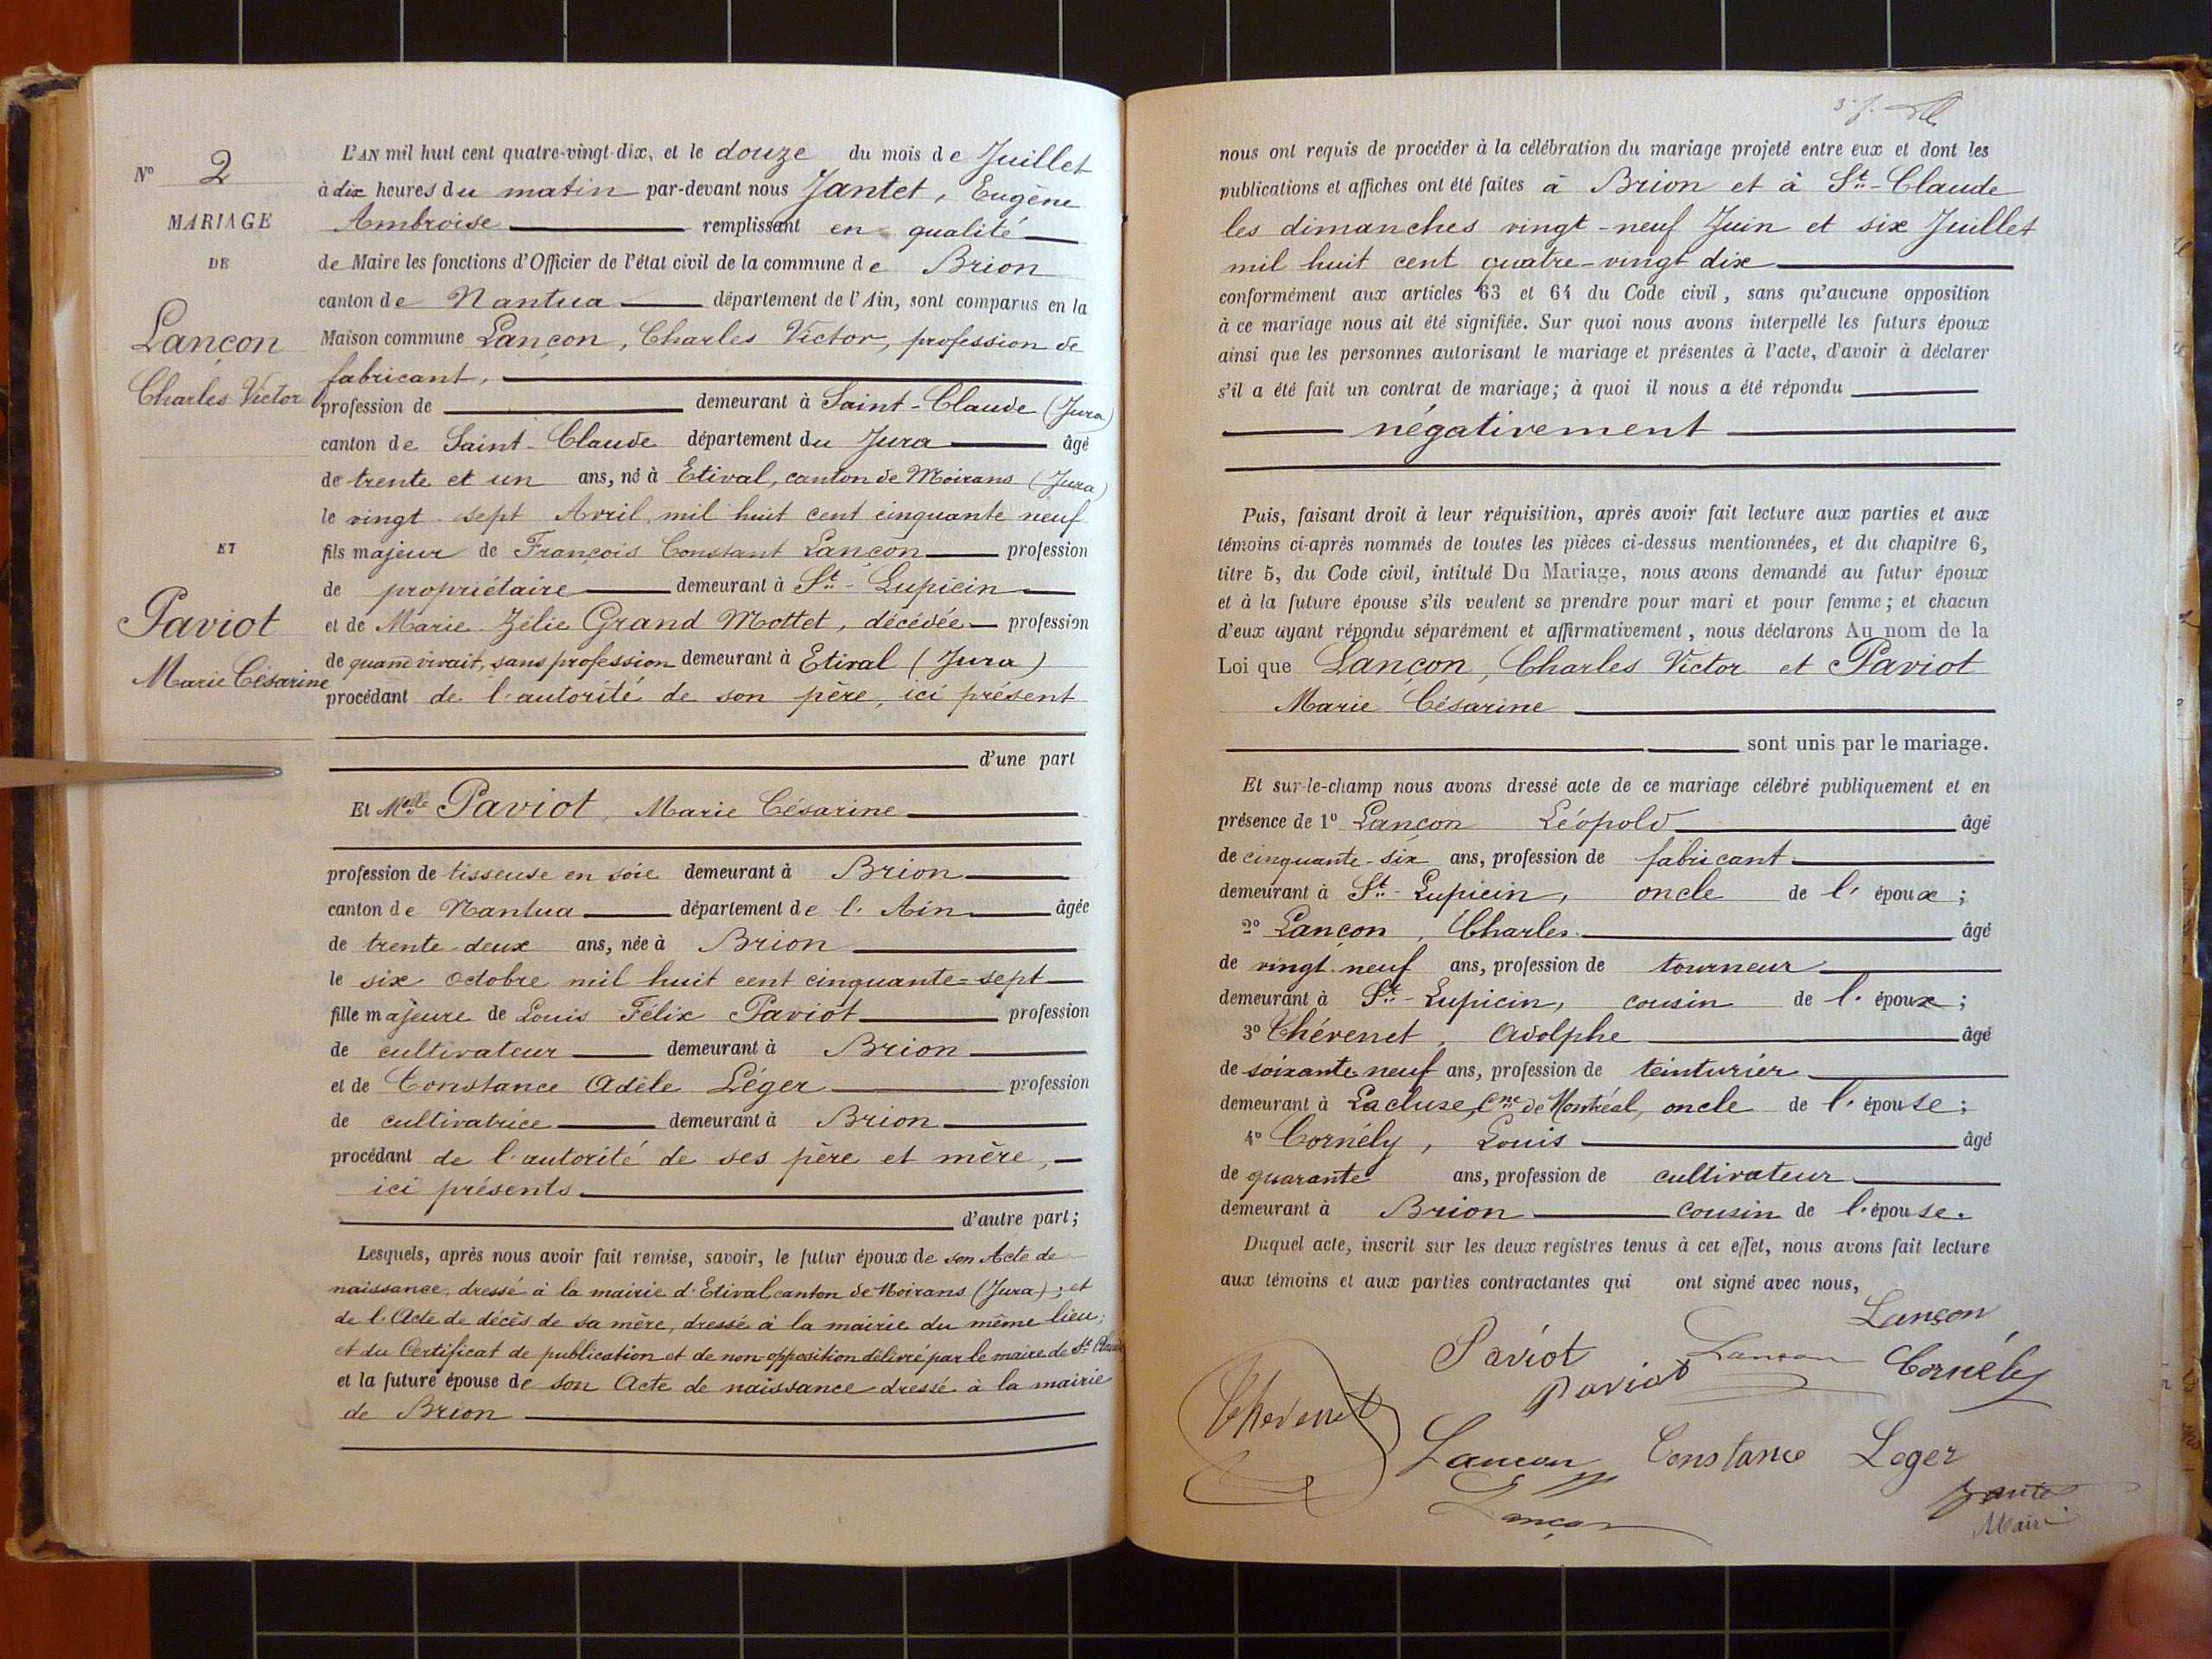 N° 2
MARIAGE
DE
Lançon
Charles Victor
ET
Paviot
Marie Césarine
L'AN mil huit cent quatre-vingt-dix, et le douze du mois de Juillet
à dix heures du matin par-devant nous Jantet, Eugène
Ambroise remplissant en qualité
de Maire les fonctions d'Officier de l'état civil de la commune de Brion
canton de Nantua département de l'Ain, sont comparus en la
Maison commune Lançon, Charles Victor, profession de
fabricant,
profession de demeurant à Saint-Claude (Jura)
canton de Saint-Claude département du Jura âgé
de trente et un ans, né à Etival, canton de Moirans (Jura)
le vingt-sept Avril mil huit cent cinquante neuf
fils majeur de François Constant Lançon profession
de propriétaire demeurant à St-Lupicin
et de Marie Zélie Grand Mottet, décédée profession
de quand vivait, sans profession demeurant à Etival (Jura)
procédant de l'autorité de son père, ici présent
d'une part
Et Melle Paviot, Marie Césarine
profession de tisseuse en soie demeurant à Brion
canton de Nantua département de l'Ain âgée
de trente-deux ans, née à Brion
le six octobre mil huit cent cinquante=sept
fille majeure de Louis Félix Paviot profession
de cultivateur demeurant à Brion
et de Constance Adèle Léger profession
de cultivatrice demeurant à Brion
procédant de l'autorité de ses père et mère,
ici présents
d'autre part;
Lesquels, après nous avoir fait remise, savoir, le futur époux de son Acte de
naissance, dressé à la mairie d'Etival canton de Moirans (Jura); et
de l'Acte de décès de sa mère, dressé à la mairie du même lieu;
et du Certificat de publication et de non-opposition délivré par le maire de St Claude
et la future épouse de son Acte de naissance dressé à la mairie
de Brion
nous ont requis de procéder à la célébration du mariage projeté entre eux et dont les
publications et affiches ont été faites à Brion et à St-Claude
les dimanches vingt-neuf Juin et six Juillet
mil huit cent quatre-vingt dix
conformément aux articles 63 et 64 du Code civil, sans qu'aucune opposition
à ce mariage nous ait été signifiée. Sur quoi nous avons interpellé les futurs époux
ainsi que les personnes autorisant le mariage et présentes à l'acte, d'avoir à déclarer
s'il a été fait un contrat de mariage; à quoi il nous a été répondu
négativement
Puis, faisant droit à leur réquisition, après avoir fait lecture aux parties et aux
témoins ci-après nommés de toutes les pièces ci-dessus mentionnées, et du chapitre 6,
titre 5, du Code civil, intitulé Du Mariage, nous avons demandé au futur époux
et à la future épouse s'ils veulent se prendre pour mari et pour femme; et chacun
d'eux ayant répondu séparément et affirmativement, nous déclarons Au nom de la
Loi que Lançon, Charles Victor et Paviot
Marie Césarine
sont unis par le mariage.
Et sur-le-champ nous avons dressé acte de ce mariage célébré publiquement et en
présence de 1° Lançon Léopold âgé
de cinquante-six ans, profession de fabricant
demeurant à St-Lupicin, oncle de l'époux;
2° Lançon, Charles âgé
de vingt-neuf ans, profession de tourneur
demeurant à St-Lupicin, cousin de l'époux;
3° Thévenet, Adolphe âgé
de soixante-neuf ans, profession de teinturier
demeurant à Lacluse, Cne de Montréal, oncle de l'épouse;
4° Cornély, Louis âgé
de quarante ans, profession de cultivateur
demeurant à Brion cousin de l'épouse.
Duquel acte, inscrit sur les deux registres tenus à cet effet, nous avons fait lecture
aux témoins et aux parties contractantes qui ont signé avec nous,
Lançon
Paviot Lancon Cornély
Paviot
Thevenet
Lancon Constance Leger
Lançon
Jantet
Maire